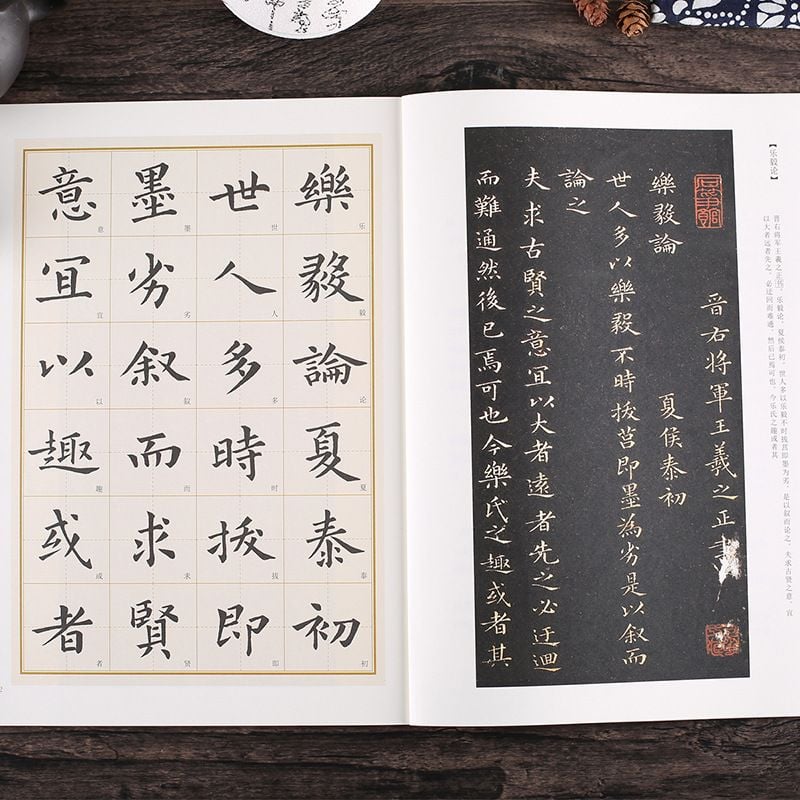 樂毅論夏泰初
乐毅论夏泰初
世人多時拔即
世人多时拔即
墨劣叙而求賢
墨劣叙而求贤
意宜以趣或者
意宜以趣或者
2
【乐毅论】
晋右将军王羲之正书。乐毅论，夏侯泰初。世人多以乐毅不时拔莒即墨为劣，是以叙而论之。夫求古贤之意，宜
以大者远者先之，必迂回而难通，然后已焉可也。今乐氏之趣或者其
晉右將軍王羲之正書
樂毅論 夏侯泰初
世人多以樂毅不時拔莒即墨為劣是以叙而
論之
夫求古賢之意宜以大者遠者先之必迂迴
而難通然後已焉可也今樂氏之趣或者其